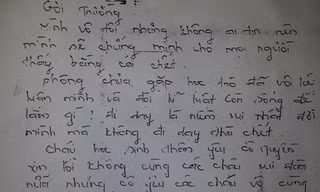 Gởi Trường:
Mình vô tội nhưng không ai tin nên
mình sẽ chứng minh cho mọi người
thấy bằng cái chết.
phòng chưa gặp học trò đã vội kết
luận mình và đòi kỉ luật còn sống để
làm gì? đi dạy là niềm vui nhất đời
mình mà không đi dạy thà chết.
Cháu học sinh thân yêu cô Quyên
xin lỗi không cùng các cháu vui đùa
nữa nhưng cô yêu các cháu vô cùng